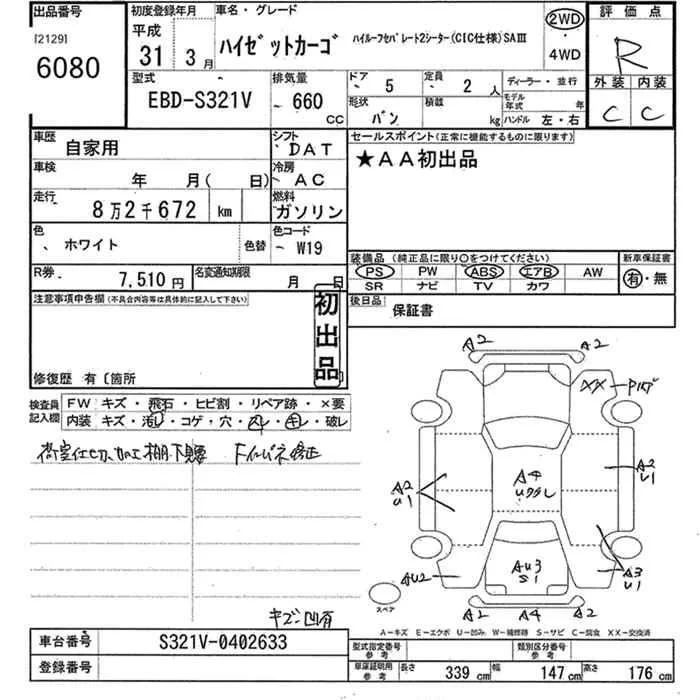 出品番号
[2129]
6080
初度登録年月
平成
31 3月
車名・グレード
ハイゼットカーゴ ハイルーフセパレート2シーター(CIC仕様)SAⅢ
2WD
・
4WD
評価点
R
外装 内装
C C
型式
EBD-S321V
排気量
660
CC
ドア 5
形状 バン
定員 2 人
積載 kg
ディーラー・並行
モデル年式 年
ハンドル 左・右
車歴
自家用
シフト
DAT
車検
年 月( 日)
冷房
AC
走行
8万2千672 km
燃料
ガソリン
色
ホワイト
色替
色コード
W19
R券
7,510円
名変通知期限
月 日
セールスポイント(正常に機能するものに限ります)
★AA初出品
装備品(純正品に限り○をつけてください)
PS PW ABS エアB AW
SR ナビ TV カワ
新車保証書
有・無
後日品
保証書
注意事項申告欄(不具合内容等は具体的に記入して下さい)
初出品
修復歴 有〔箇所
検査員記入欄
FW キズ・飛石・ヒビ割・リペア跡・×要
内装 キズ・汚れ・コゲ・穴・スレ・キレ・破レ
キズ凹有
A2 A2
XX P
A2
U1
A4
A2
U1
AU2
AU3
S1
A3
U1
スペア
A2 A4 A2
A-キズ E-エクボ U-凹み W-補修跡 S-サビ C-腐食 XX-交換済
車台番号
S321V-0402633
登録番号
型式指定番号
参考
類別区分番号
参考
車庫証明用
参考
長さ 339 cm 幅 147 cm 高さ 176 cm